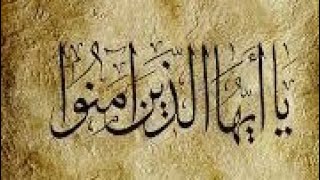 يا أيّها الّذين امنوا